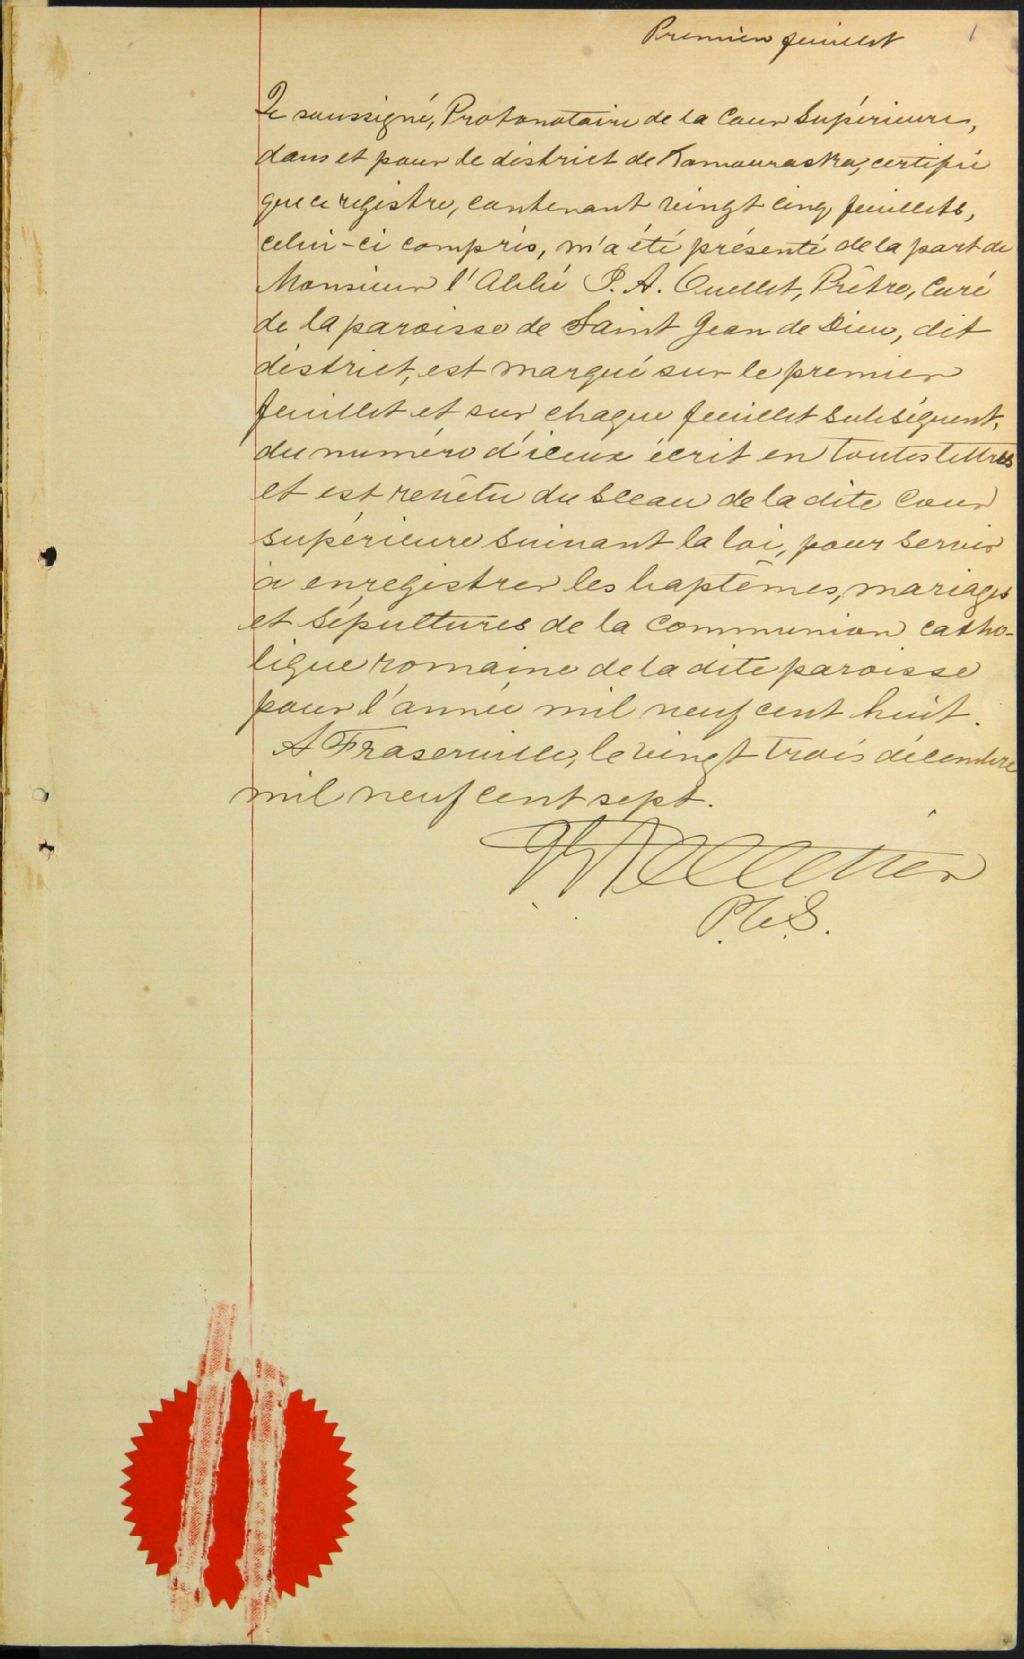 Premier feuillet 1
Je soussigné, Protonotaire de la Cour Supérieure,
dans et pour le district de Kamouraska, certifie
que ce registre, contenant vingt cinq feuillets,
celui-ci compris, m'a été présenté de la part de
Monsieur l'Abbé J. A. Ouellet, Prêtre, Curé
de la paroisse de Saint Jean de Dieu, dit
district, est marqué sur le premier
feuillet et sur chaque feuillet subséquent,
du numéro d'iceux écrit en toutes lettres
et est revêtu du sceau de la dite Cour
supérieure suivant la loi, pour servir
à enregistrer les baptêmes, mariages
et sépultures de la Communion catho-
lique romaine de la dite paroisse
pour l'année mil neuf cent huit.
A Fraserville, le vingt trois décembre
mil neuf cent sept.
Pelletier
P.C.S.